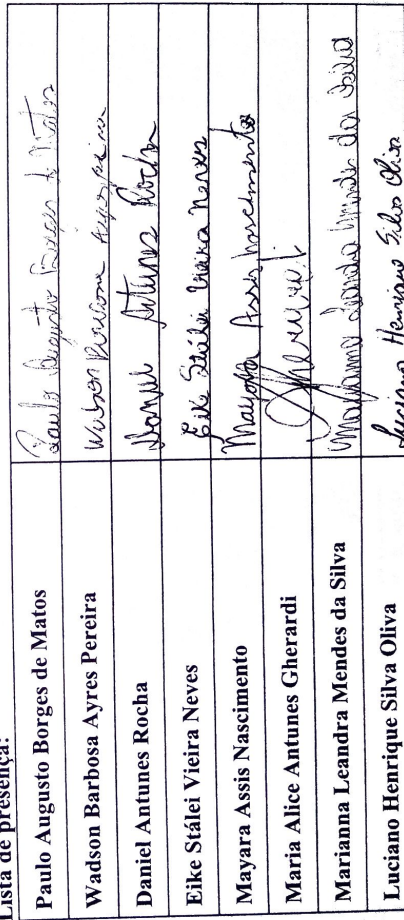 Lista de presença:
Paulo Augusto Borges de Matos Paulo Augusto Borges de Matos
Wadson Barbosa Ayres Pereira Wadson
Daniel Antunes Rocha Daniel Antunes Rocha
Eike Stálei Vieira Neves Eike Stálei Vieira Neves
Mayara Assis Nascimento Mayara Assis Nascimento
Maria Alice Antunes Gherardi
Marianna Leandra Mendes da Silva Marianna Leandra Mendes da Silva
Luciano Henrique Silva Oliva Luciano Henrique Silva Oliva